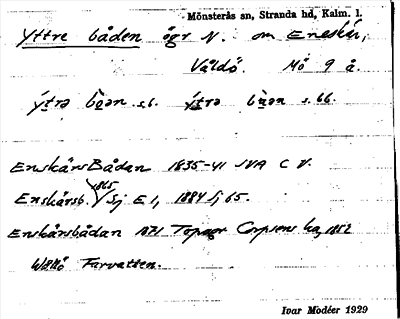 Mönsterås sn, Stranda hd, Kalm. l.
Yttre båden ögr N. om Eneskär,
Våldö. Mö 9 å.
ýtrə bọən s.6. ýtrə bụən s.66.
EnskärsBådan 1835-41 JVA C V.
1865
Enskärsb. Sj E 1, 1884 Sj 65.
Enskärsbådan 1871 Topogr Corpsens ka, 1852
Wållö Farvatten.
Ivar Modéer 1929